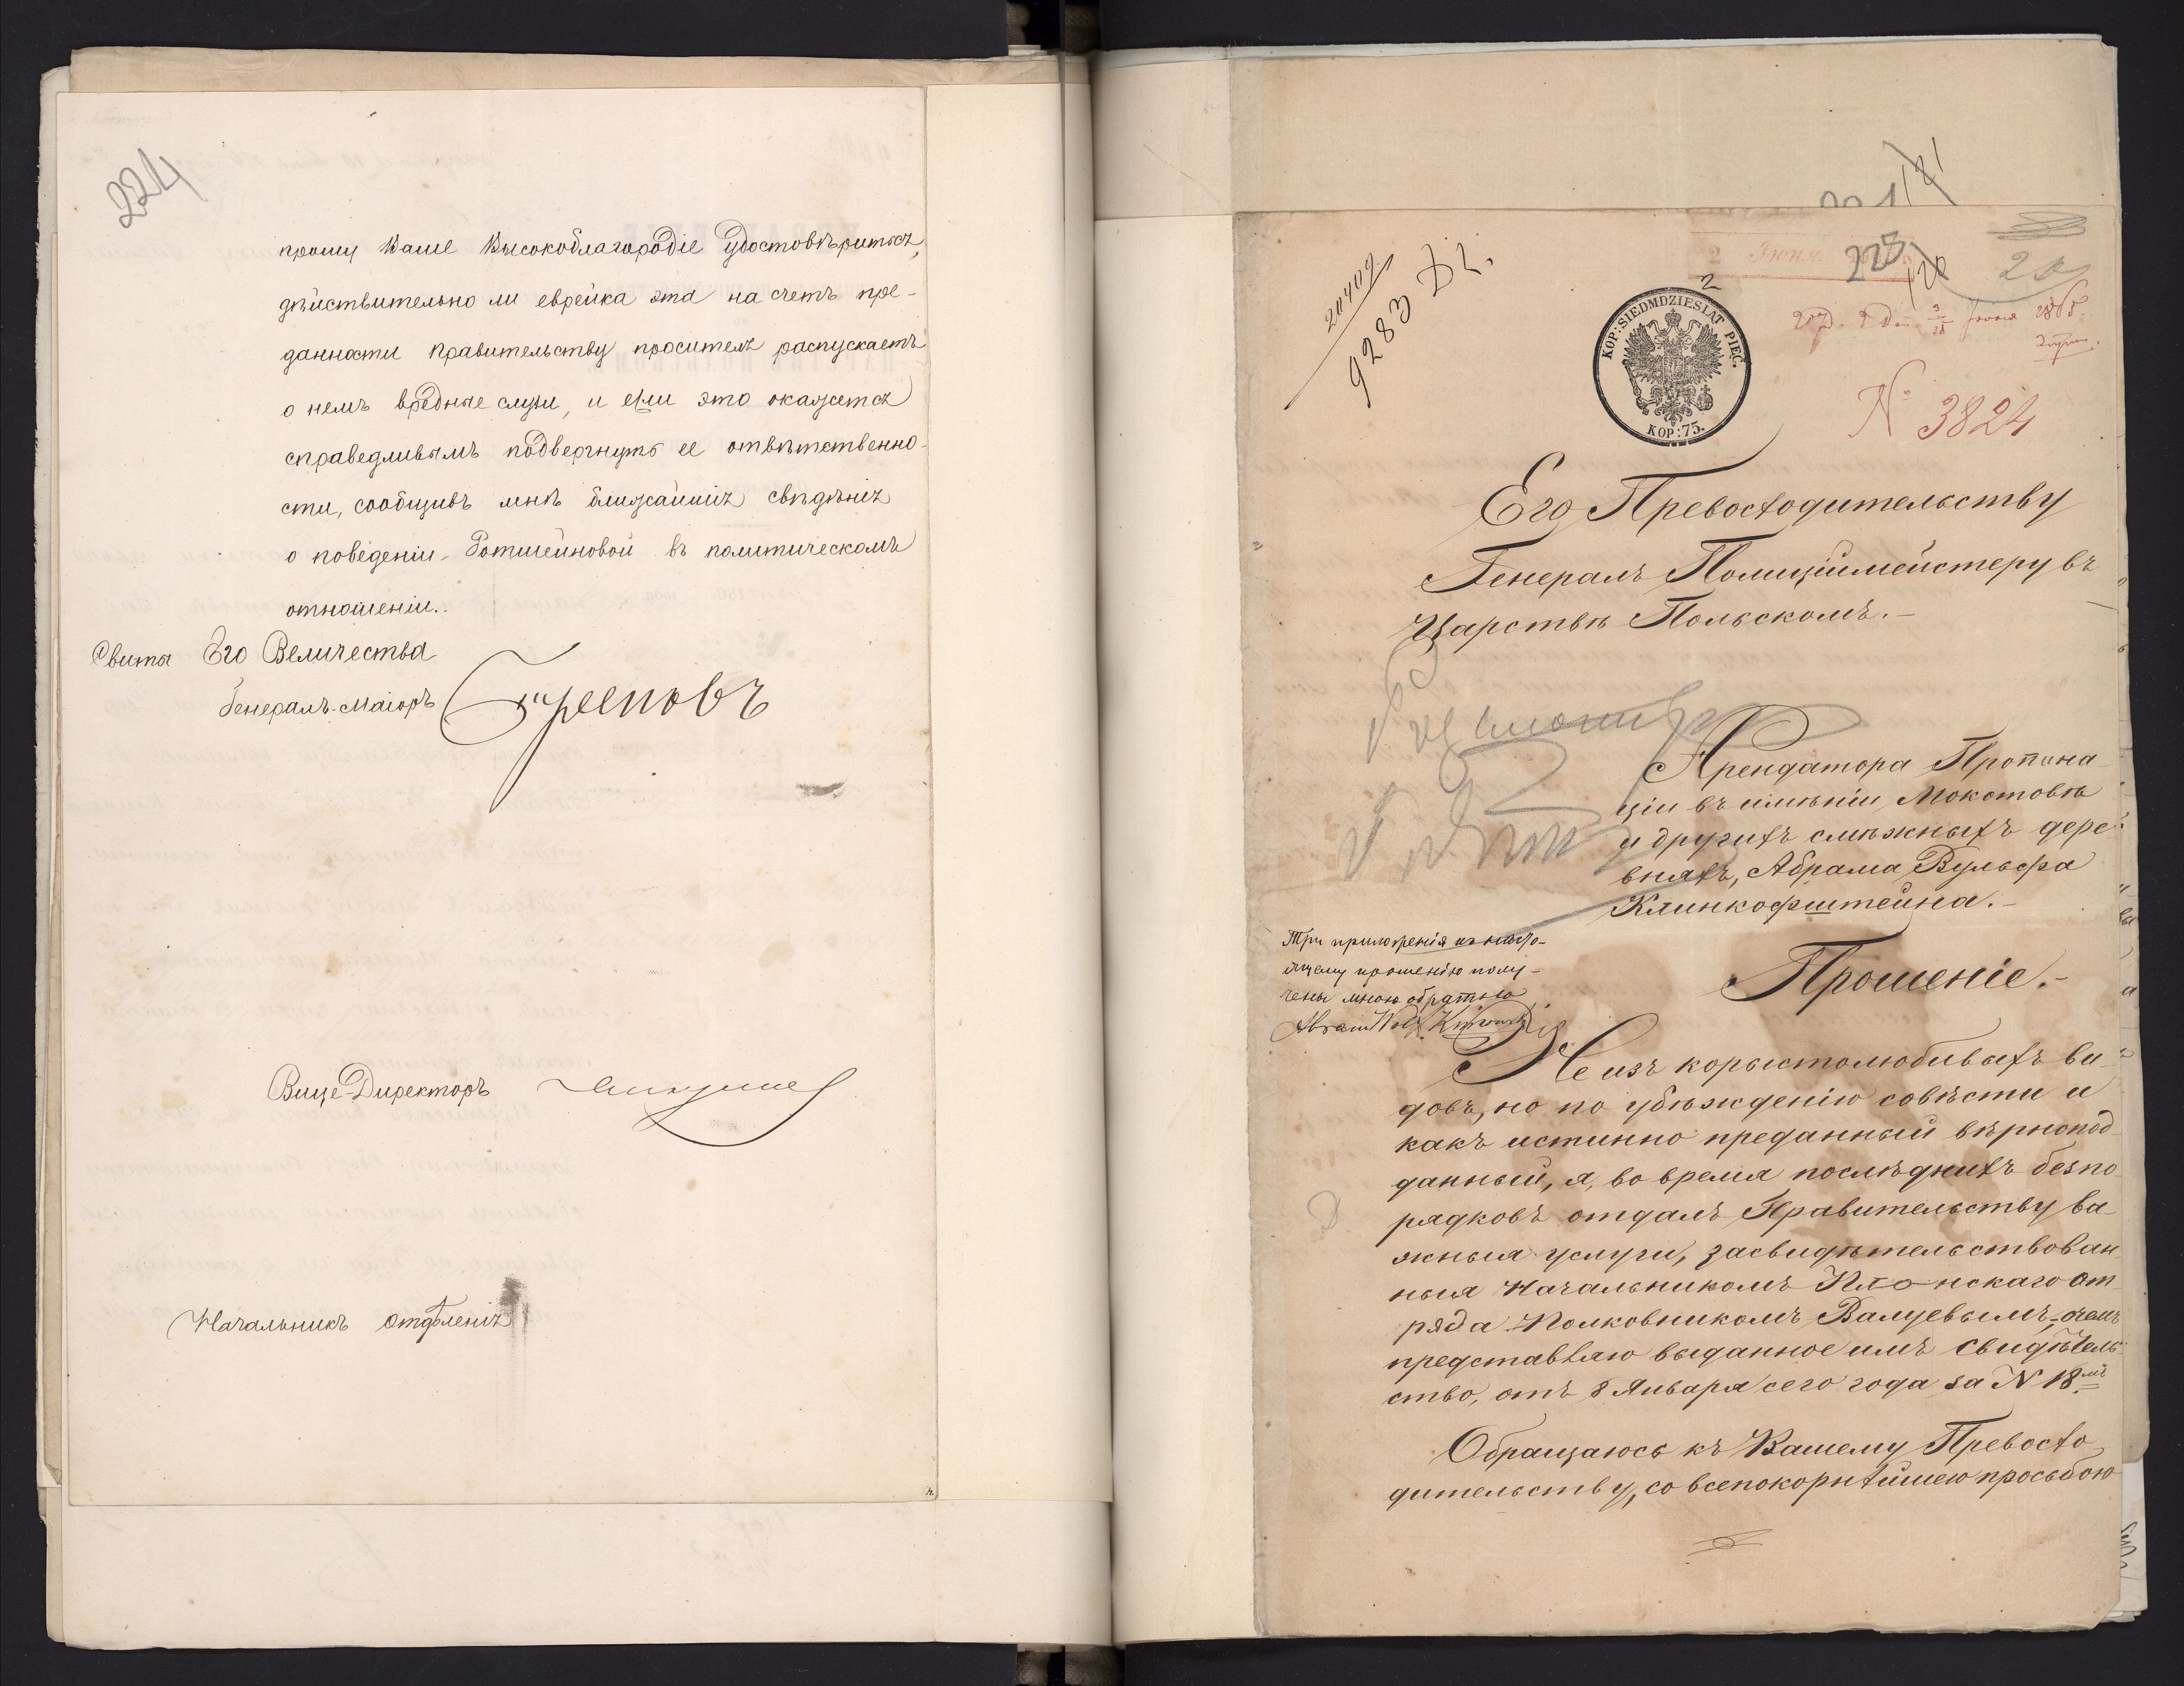 224
прошу Ваше Высокоблагородіе удостовѣриться,
дѣйствительно ли еврейка эта на счетъ пре-
данности Правительству просителя распускаетъ
о немъ вредные слухи, и если это окажется
справедливымъ подвергнуть ее отвѣтственно-
сти, сообщивъ мнѣ ближайшія свѣдѣнія
о поведеніи Ротштейновой въ политическомъ
отношеніи.
Свиты Его Величества
Генералъ-Маіоръ Треповъ
Вице-Директоръ
Начальникъ Отдѣленія
181
225
120
20
2 Іюня
20409
9283
2
KOP: SIEDMDZIESIAT PIĘĆ.
KOP: 75.
№ 3824
Его Превосходительству
Генералъ Полиціймейстеру въ
Царствѣ Польскомъ.-
Арендатора Пропина
ціи въ имѣніи Мокотовѣ
и другихъ смѣжныхъ дере-
вняхъ, Абрама Вульфа
Клинкофштейна.-
Три приложенія къ насто-
ящему прошенію полу-
чены мною обратно
Abram Wolf
Прошеніе.-
Не изъ корыстолюбивыхъ ви-
довъ, но по убѣжденію совѣсти и
какъ истинно преданный вѣрнопод
данный, я, во время послѣднихъ безпо
рядковъ отдалъ Правительству ва-
жныя услуги, засвидѣтельствован
ныя Начальникомъ Плонскаго От
ряда Полковникомъ Валуевымъ, о чемъ
представляю выданное имъ Свидѣтель-
ство, отъ 8 Января сего года за N 18.
Обращаюсь къ Вашему Превосхо
дительству, со всепокорнѣйшею просьбою